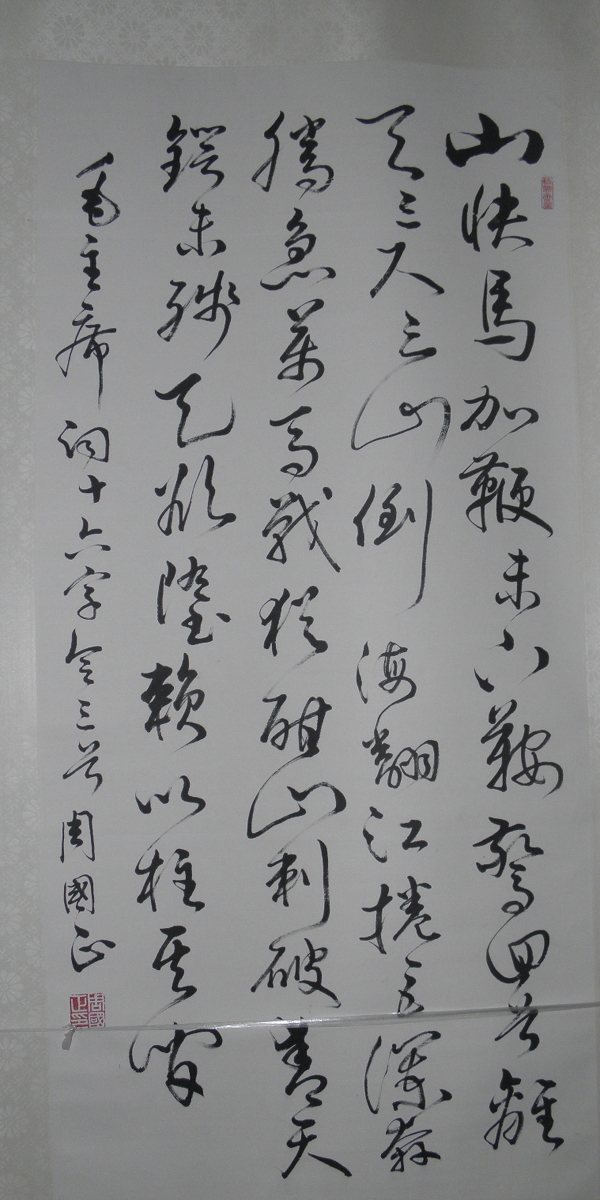 山快馬加鞭未下鞍驚回首離
天三尺三山倒海翻江捲巨瀾奔
騰急萬馬戰猶酣山刺破青天
鍔未殘天欲墮賴以柱其間
毛主席詞十六字令三首周國正
周國正印